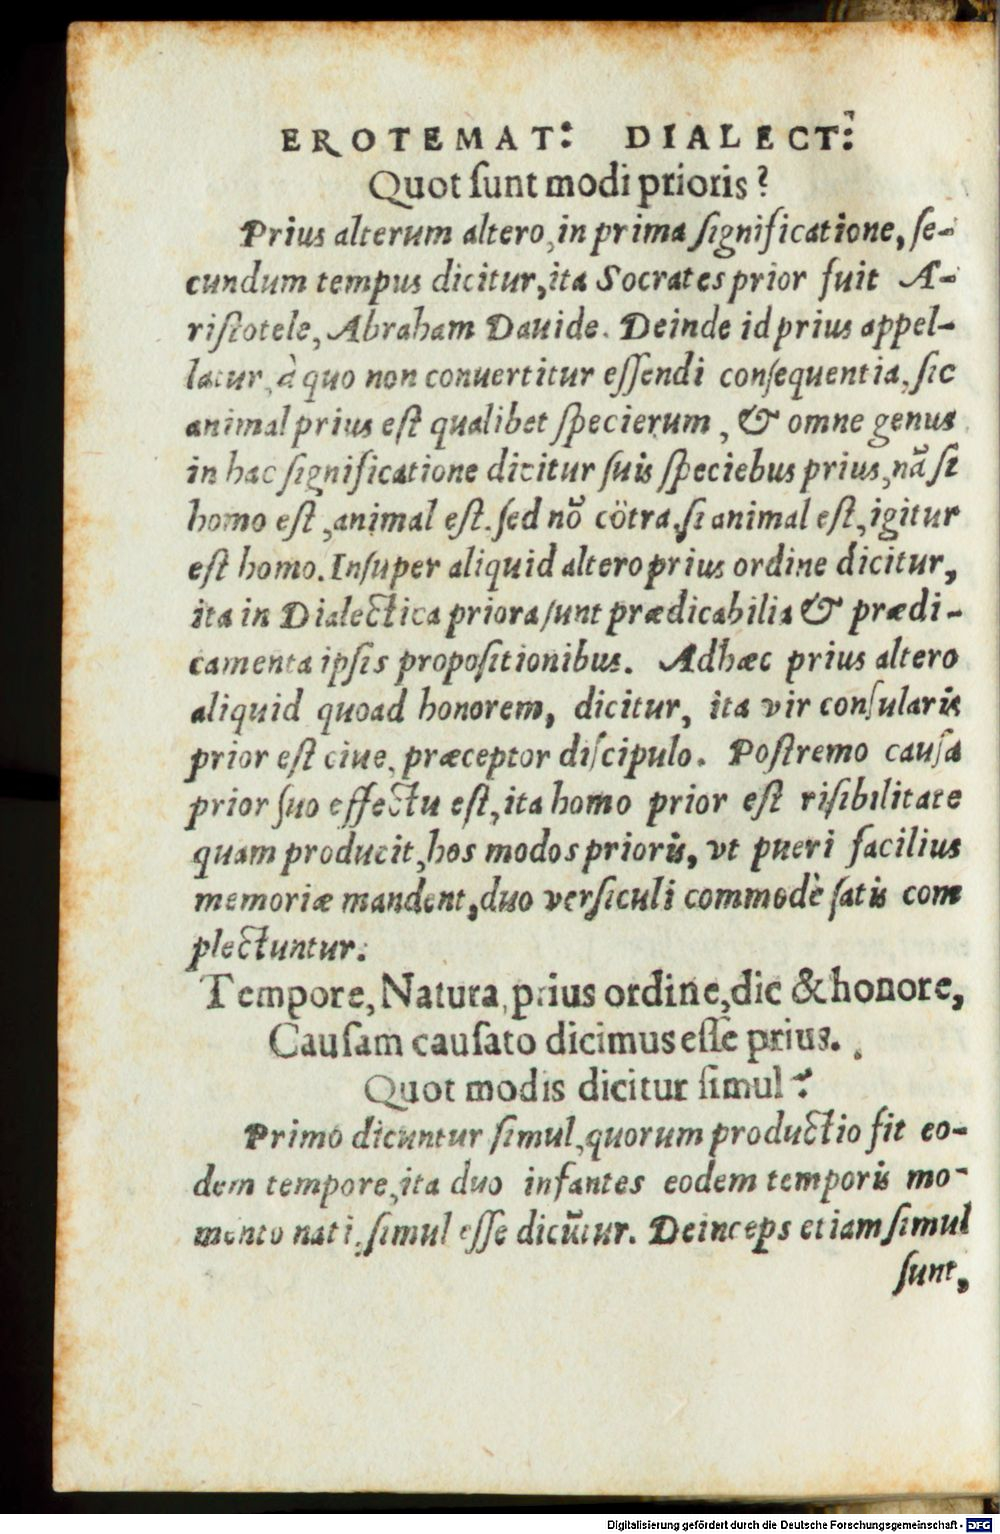 EROTEMAT: DIALECT:
Quot ſunt modi prioris?
Prius alterum altero, in prima ſignificatione, ſe-
cundum tempus dicitur, ita Socrates prior fuit A-
riſtotele, Abraham Dauide. Deinde id prius appel-
latur, à quo non conuertitur eſſendi conſequentia, ſic
animal prius eſt qualibet ſpecierum, & omne genus
in hac ſignificatione dicitur ſuis ſpeciebus prius, nã ſi
homo eſt, animal eſt. ſed nõ cõtra, ſi animal eſt, igitur
eſt homo. Inſuper aliquid altero prius ordine dicitur,
ita in Dialectica priora ſunt prædicabilia & prædi-
camenta ipſis propoſitionibus. Adhæc prius altero
aliquid quoad honorem, dicitur, ita vir conſularis
prior eſt ciue, præceptor diſcipulo. Poſtremo cauſa
prior ſuo effectu eſt, ita homo prior eſt riſibilitate
quam producit, hos modos prioris, vt pueri facilius
memoriæ mandent, duo verſiculi commodè ſatis com
plectuntur.
Tempore, Natura, prius ordine, dic & honore,
Cauſam cauſato dicimus eſſe prius.
Quot modis dicitur ſimul?
Primò dicuntur ſimul, quorum productio fit eo-
dem tempore, ita duo infantes eodem temporis mo-
mento nati, ſimul eſſe dicũtur. Deinceps etiam ſimul
ſunt,
Digitalisierung gefördert durch die Deutsche Forschungsgemeinschaft - DFG